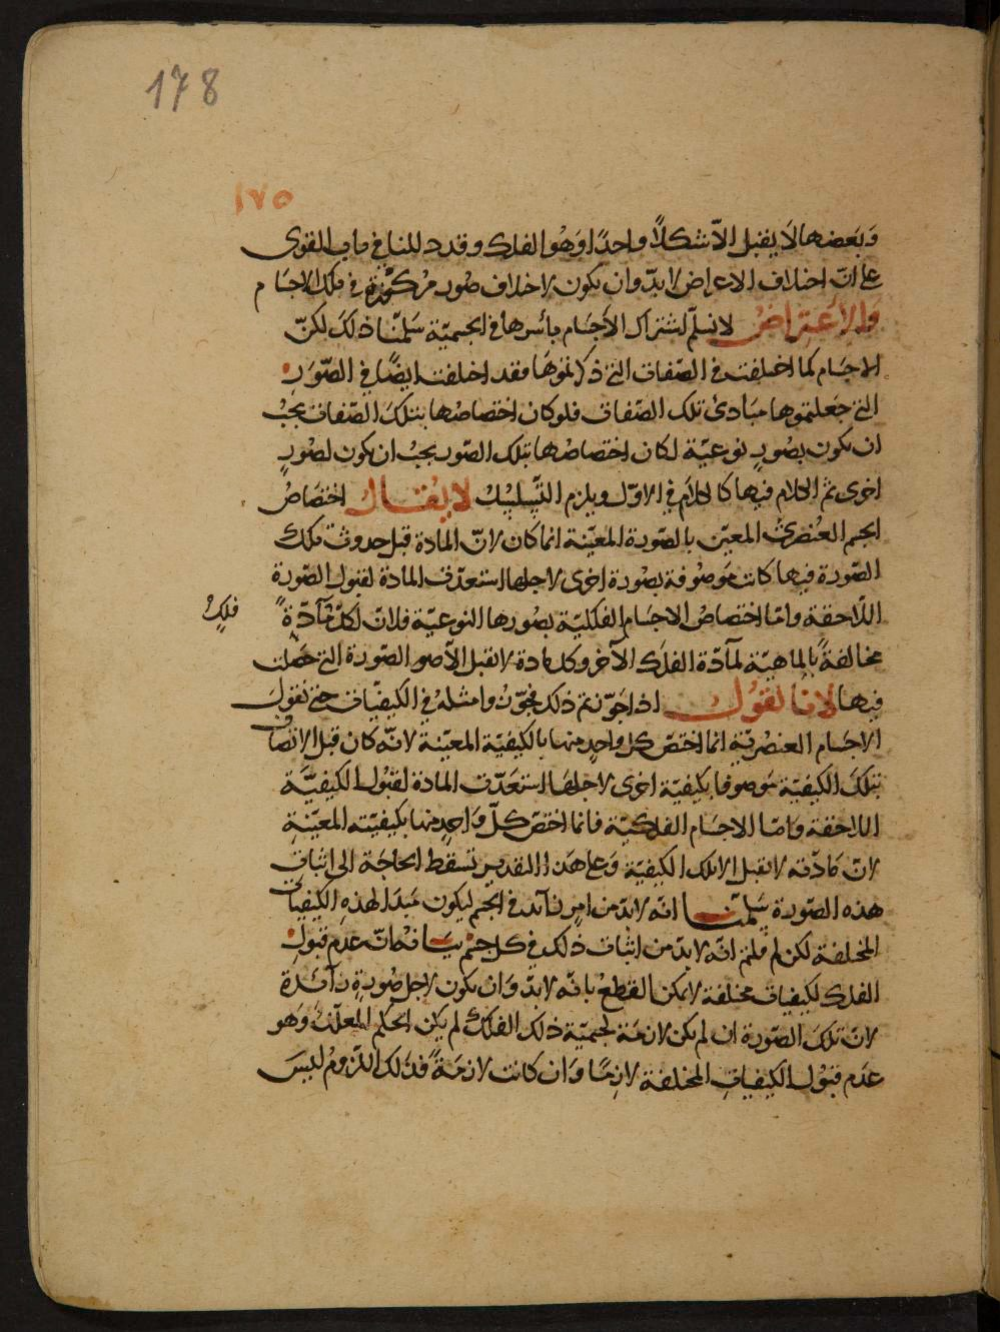 178
١٧٥
وبعضها لا يقبل الا شكلا واحدا وهو الفلك وقد دللنا في باب القوى
على ان اختلاف الاعراض لا بد وان يكون لاختلاف صور مركوزة في تلك الاجسام
والاعتراض لا نسلم اشتراك الاجسام بأسرها في الجسمية سلمنا ذلك لكن
الاجسام كما اختلفت في الصفات التي ذكرتموها فقد اختلفت ايضا في الصور
التي جعلتموها مبادئ تلك الصفات فلو كان اختصاصها بتلك الصفات يجب
ان يكون بصور نوعية لكان اختصاصها بتلك الصور يجب ان يكون لصور
اخرى ثم الكلام فيها كالكلام في الاول ويلزم التسلسل لا يقال اختصاص
الجسم العنصري المعين بالصورة المعينة انما كان لان المادة قبل حدوث تلك
الصورة فيها كانت موصوفة بصورة اخرى لاجلها استعدت المادة لقبول الصورة
اللاحقة واما اختصاص الاجسام الفلكية بصورها النوعية فلان لكل مادة
فلك
مخالفة بالماهية لمادة الفلك الآخر وكل مادة لا تقبل الا صو الصورة التي حصلت
فيها لانا نقول اذا جوزتم ذلك فجوزوا مثله في الكيفيات حتى نقول
الاجسام العنصرية انما اختص كل واحد منها بالكيفية المعينة لانه كان قبل الاتصاف
بتلك الكيفية موصوفا بكيفية اخرى لاجلها استعدت المادة لقبول الكيفية
اللاحقة واما الاجسام الفلكية فانما اختص كل واحد منها بكيفيته المعينة
لان مادته لا تقبل الا تلك الكيفية وعلى هذا التقدير تسقط الحاجة الى اثبات
هذه الصورة سلمنا انه لا بد من امر زائد في الجسم ليكون مبدا لهذه الكيفيات
المختلفة لكن لم قلتم انه لا بد من اثبات ذلك في كل جسم عدم قبول
الفلك لكيفيات مختلفة لا يمكن القطع بانه لا بد وان يكون لاجل صورة زائدة
لان تلك الصورة ان لم تكن لازمة لجسمية ذلك الفلك لم يكن الحكم المعلل وهو
عدم قبول الكيفيات المختلفة لازما وان كانت لازمة فذلك اللزوم ليس